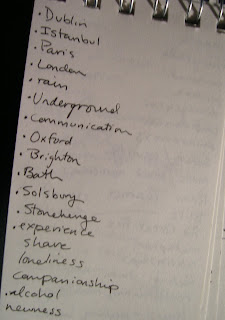 • Dublin
• Istanbul
• Paris
• London
• rain
• Underground
• Communication
• Oxford
• Brighton
• Bath
• Solsburg
• Stonehenge
• experience
share
loneliness
companionship
• alcohol
newness